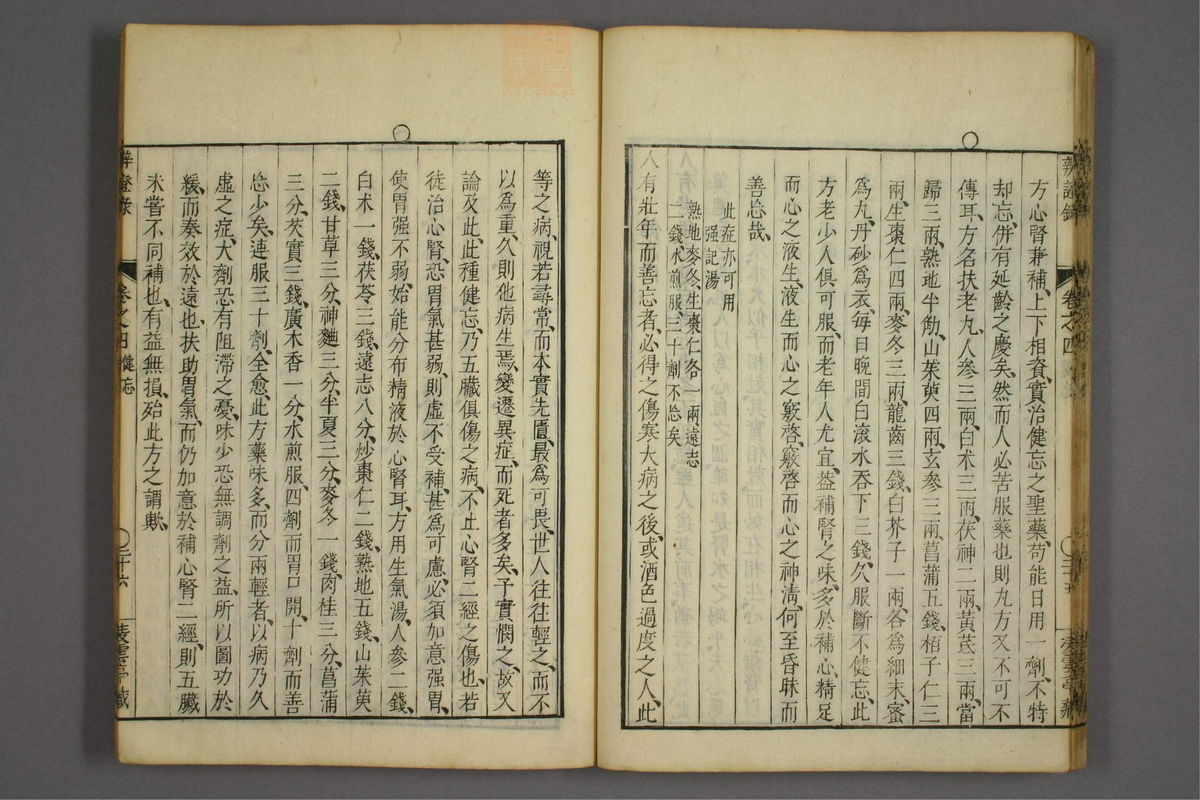 辨證錄
卷之四
方心腎兼補上下相資實治健忘之聖藥苟能日用一劑不特
却忘併有延齡之慶矣然而人必苦服藥也則丸方又不可不
傳耳方名扶老丸人參三兩白术三兩茯神二兩黃芪三兩當
歸三兩熟地半觔山茱萸四兩玄參三兩菖蒲五錢栢子仁三
兩生棗仁四兩麥冬三兩龍齒三錢白芥子一兩各爲細末蜜
爲丸丹砂爲衣每日晚間白滚水吞下三錢久服斷不健忘此
方老少人俱可服而老年人尤宜益補腎之味多於補心精足
而心之液生液生而心之竅啓竅啓而心之神淸何至昏昧而
善忘哉
此症亦可用
强記湯
熟地麥冬生棗仁各一兩遠志
二錢水煎服三十劑不忘矣
人有壯年而善忘者必得之傷寒大病之後或酒色過度之人此
等之病視若尋常而本實先匱最爲可畏世人往往輕之而不
以爲重久則他病生焉變遷異症而死者多矣予實憫之故又
論及此此種健忘乃五臟俱傷之病不止心腎二經之傷也若
徒治心腎恐胃氣甚弱則虛不受補甚爲可慮必須加意强胃
使胃强不弱始能分布精液於心腎耳方用生氣湯人參二錢
白术一錢茯苓三錢遠志八分炒棗仁二錢熟地五錢山茱萸
二錢甘草三分神麯三分半夏三分麥冬一錢肉桂三分菖蒲
三分芡實三錢廣木香一分水煎服四劑而胃口開十劑而善
忘少矣連服三十劑全愈此方藥味多而分兩輕者以病乃久
虛之症大劑恐有阻滞之憂味少恐無調劑之益所以圖功於
緩而奏效於遠也扶助胃氣而仍加意於補心腎二經則五臟
未嘗不同補也有益無損殆此方之謂歟
辨證錄
卷之四 健忘
二十六
凌雲亭藏